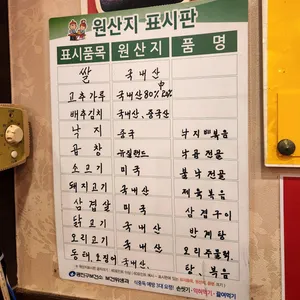 원산지 표시판
표시품목 원산지 품 명
쌀 국내산
고추가루 국내산80%
배추김치 국내산, 중국산
낙지 중국 낙지볶음
곱창 뉴질랜드 낙곱전골
소고기 미국 불낙전골
돼지고기 국내산 제육볶음
삼겹살 미국 삼겹구이
닭고기 국내산 반계탕
오리고기 국내산 오리주물럭
동태, 오징어 국내산 탕, 볶음
보건위생과 식중독 예방 3대 요령! 손씻기 익혀먹기 끓여먹기